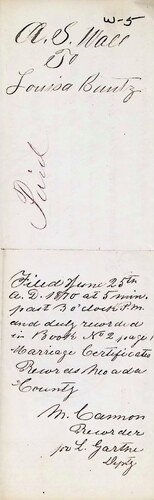 W-5
A. S. Wall
To
Louisa Buntz
Paid
Filed June 25th
A.D. 1870 at 5 min.
past 3 o'clock P.M.
and duly recorded
in Book No 2 page 1
Marriage Certificates
Records Nevada
County
M. Cannon
Recorder
pr L. Garthe
Dpty